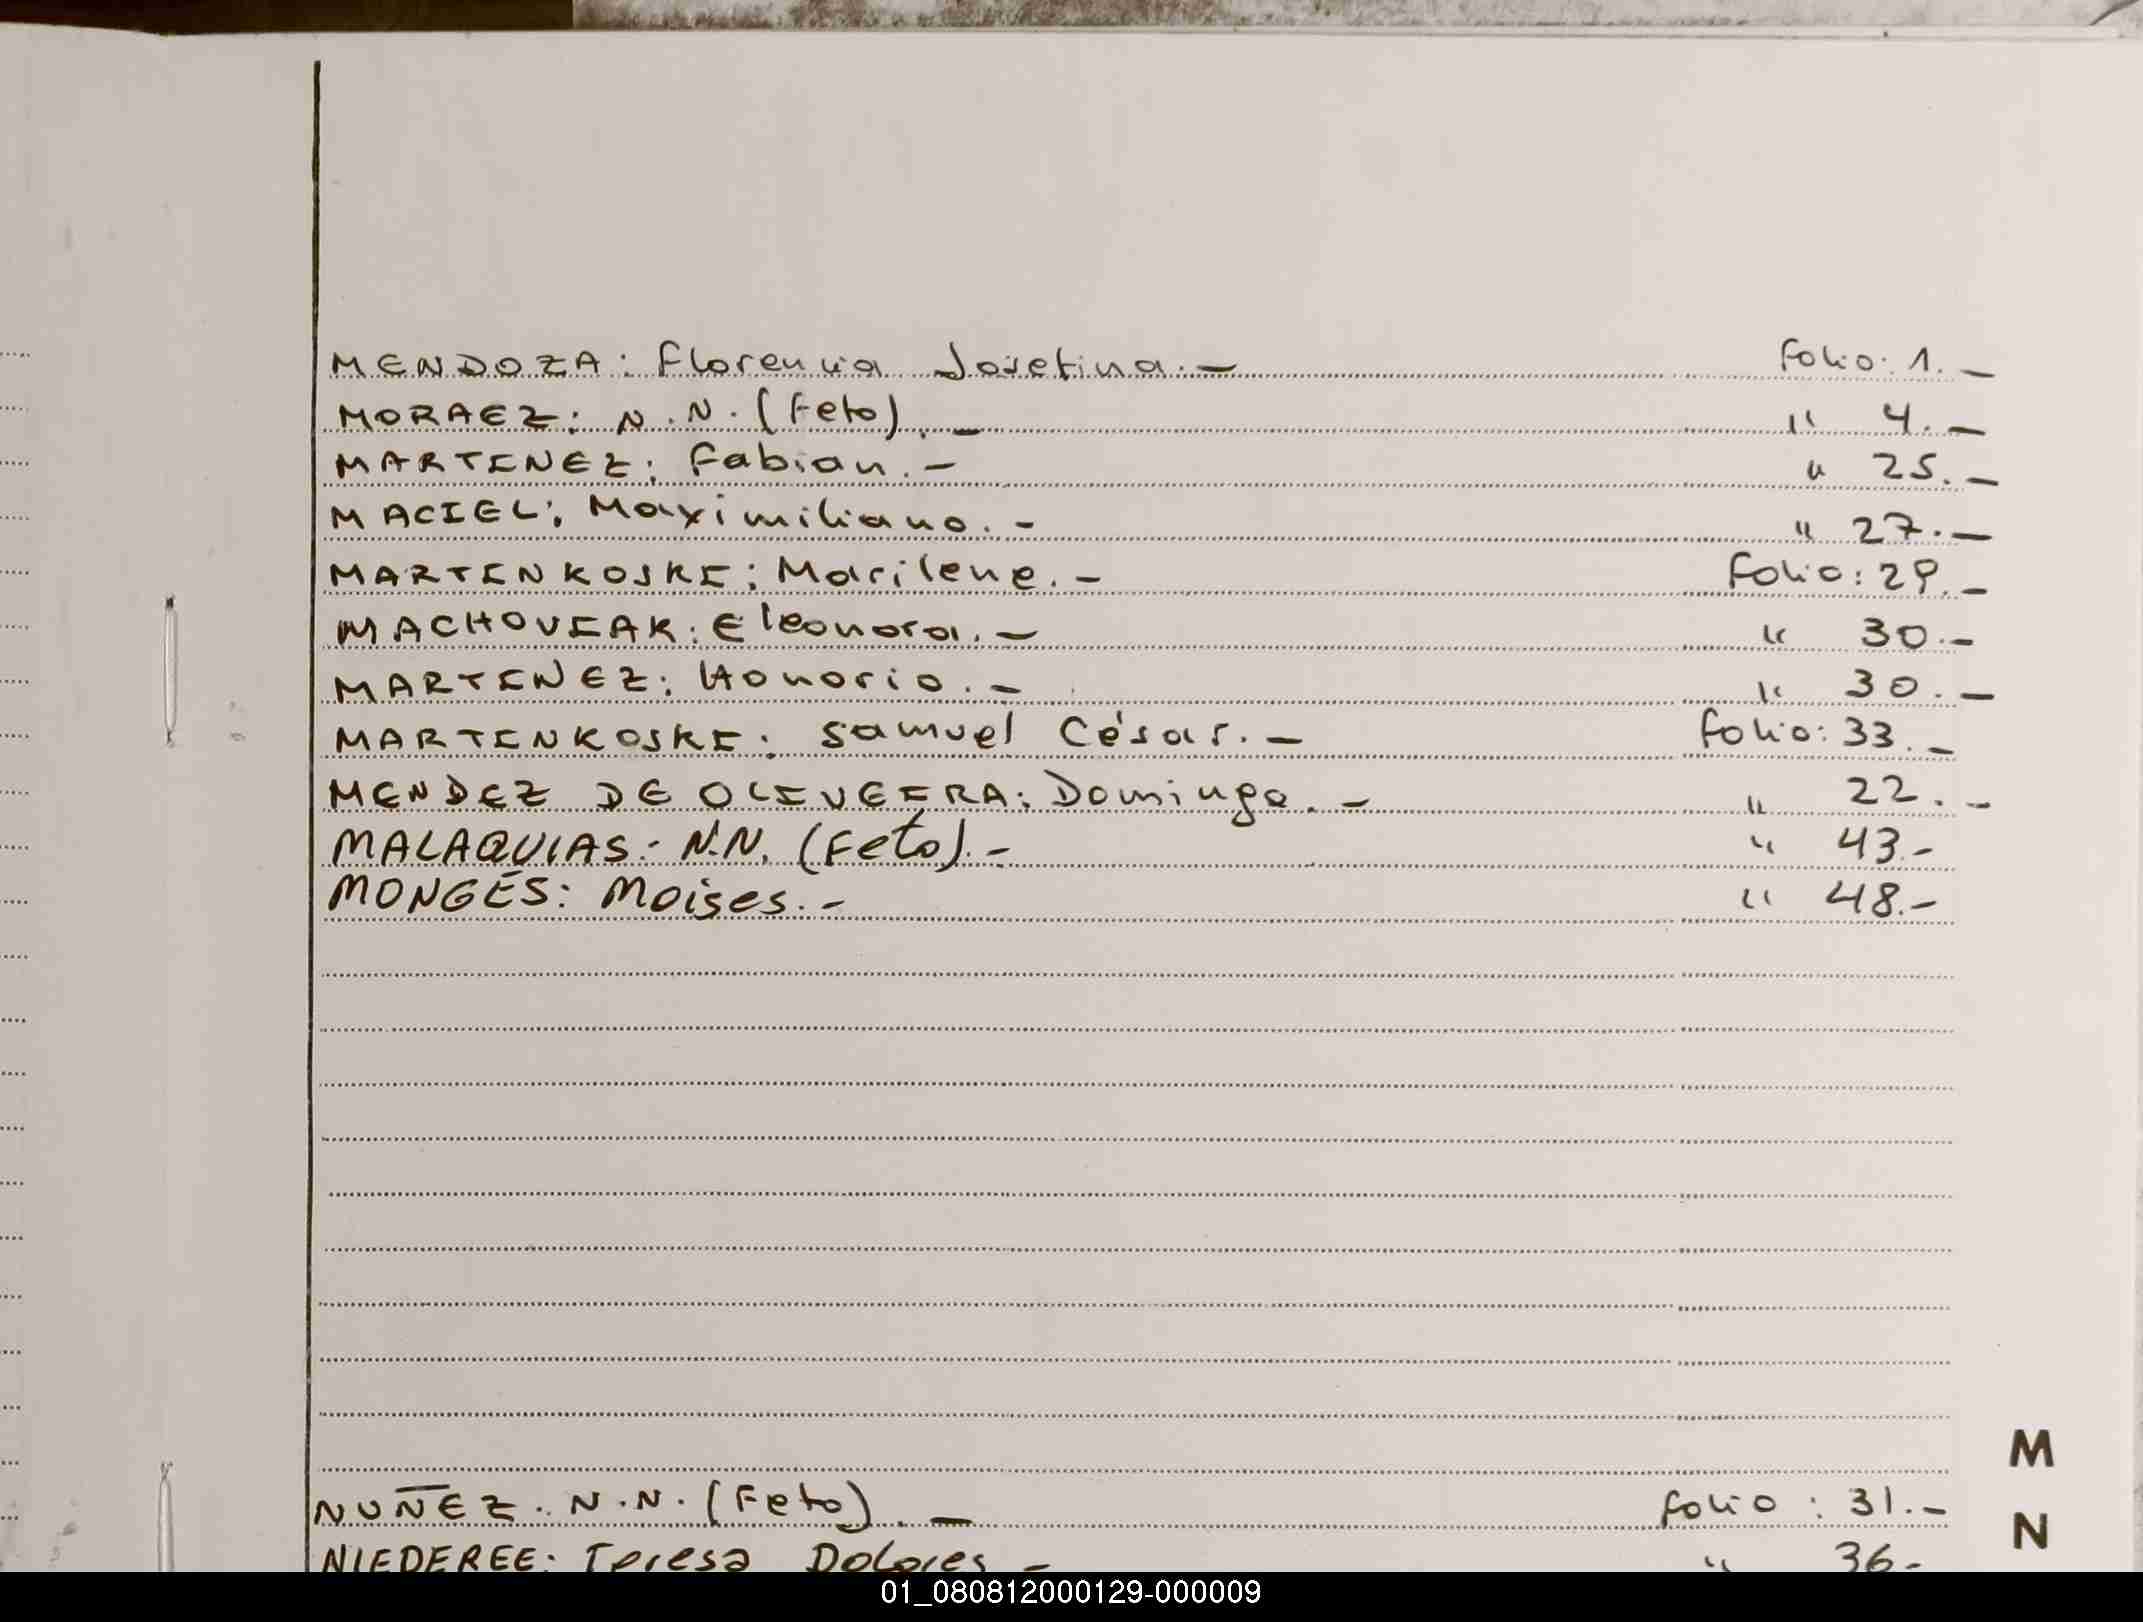 MENDOZA: Florencia Josefina.— Folio: 1.—
MORAEZ: N.N. (Feto).— " 4.—
MARTINEZ: Fabian.— " 25.—
MACIEL: Maximiliano.— " 27.—
MARTINKOSKI: Marilene.— Folio: 29.—
MACHOVIAK: Eleonora.— " 30.—
MARTINEZ: Honorio.— " 30.—
MARTINKOSKI: Samuel César.— Folio: 33.—
MENDEZ DE OLIVEIRA: Dominga.— " 22.—
MALAQUIAS: N.N. (Feto).— " 43.—
MONGES: Moises.— " 48.—
M
NUÑEZ: N.N. (Feto).— Folio: 31.—
N
NIEDEREE: Teresa Dolores — " 36.-
01_080812000129-000009